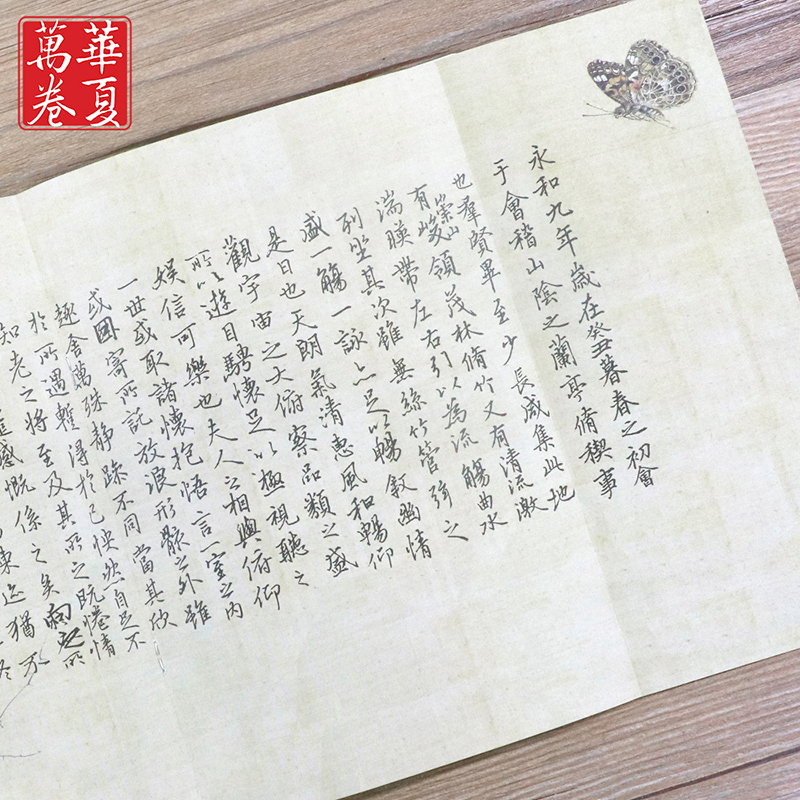 華夏
萬卷
永和九年歲在癸丑暮春之初會
于會稽山陰之蘭亭脩稧事
也羣賢畢至少長咸集此地
有崇山峻領茂林脩竹又有清流激
湍暎帶左右引以為流觴曲水
列坐其次雖無絲竹管弦之
盛一觴一詠亦足以暢敘幽情
是日也天朗氣清惠風和暢仰
觀宇宙之大俯察品類之盛
所以遊目騁懷足以極視聽之
娛信可樂也夫人之相與俯仰
一世或取諸懷抱悟言一室之內
或因寄所託放浪形骸之外雖
趣舍萬殊静躁不同當其欣
於所遇蹔得於己怏然自足不
知老之將至及其所之既惓情
感慨係之矣向之所
猶不